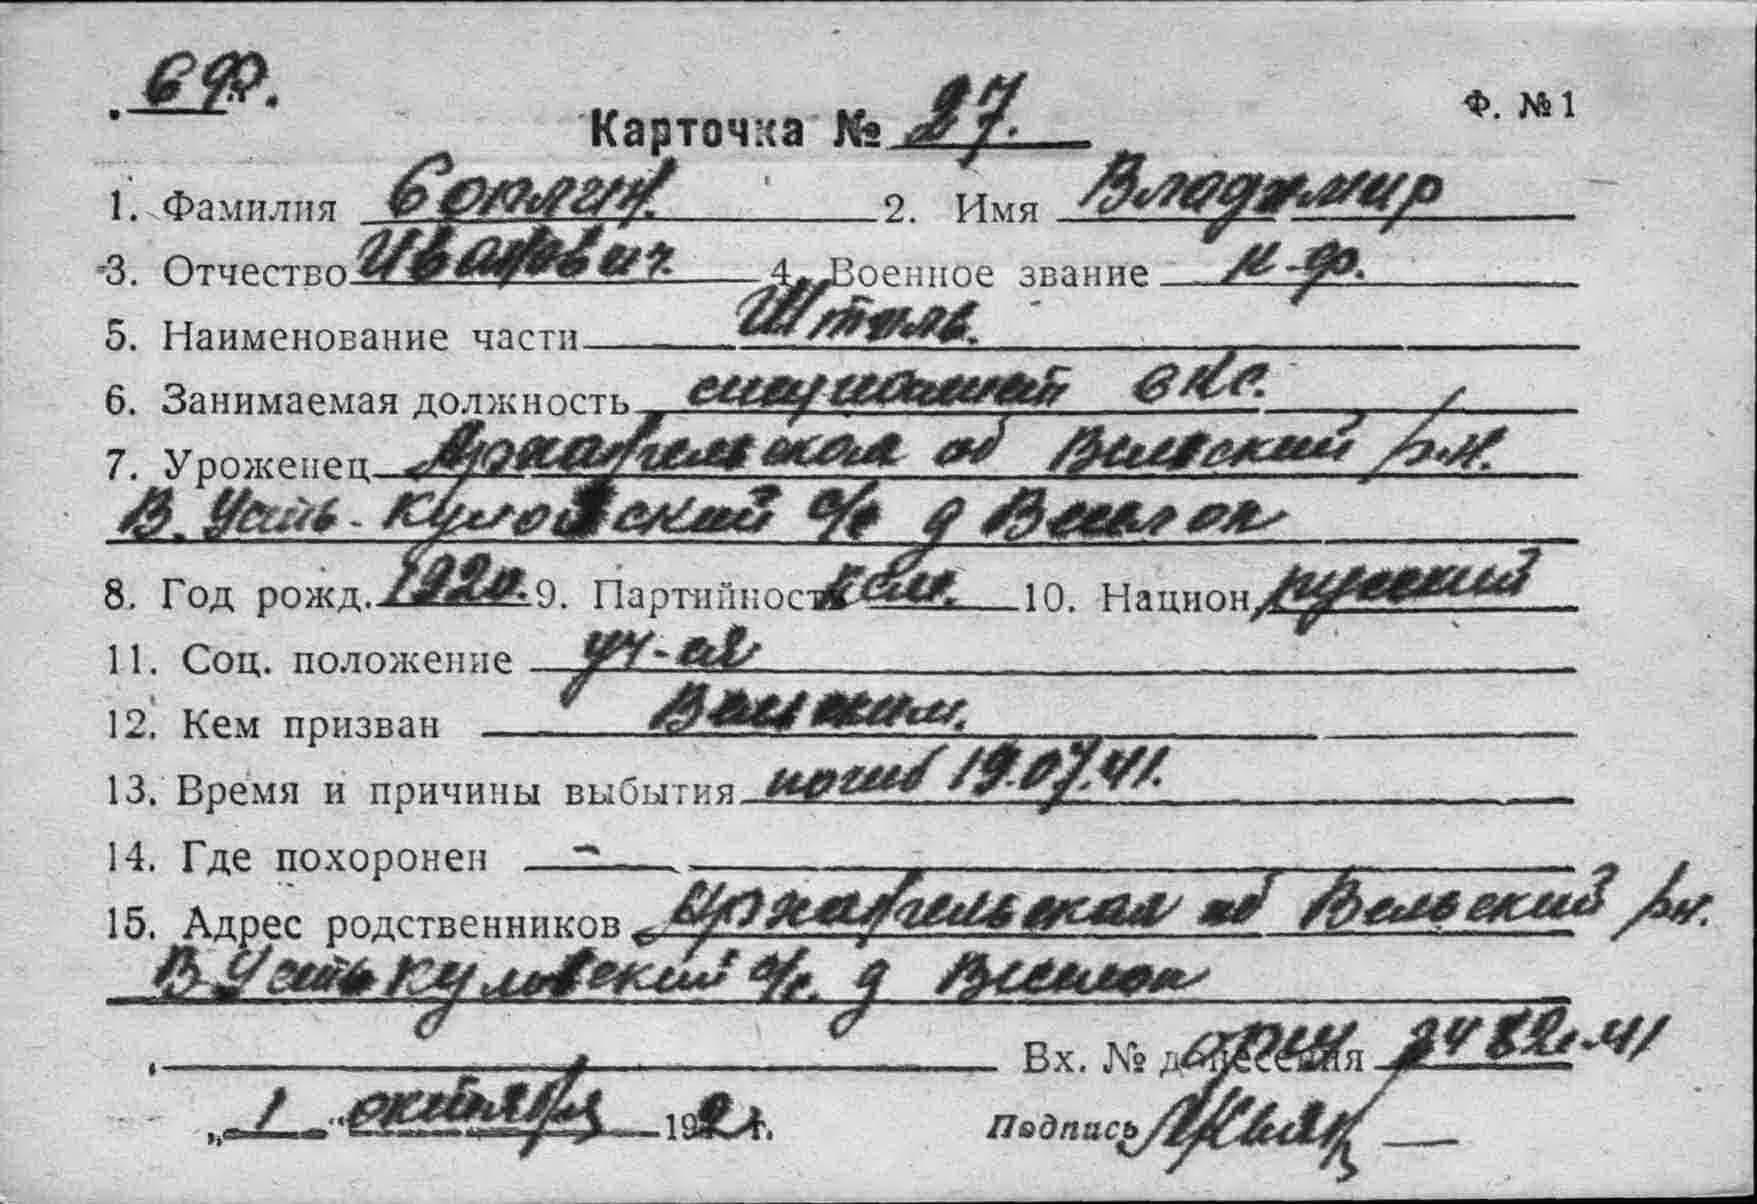 СФ.
Ф. № 1
Карточка № 27.
1. Фамилия 2. Имя Владимир
3. Отчество Иванович. 4. Военное звание к-ф.
5. Наименование части
6. Занимаемая должность специалист
7. Уроженец Архангельская об Вельский р-н.
В. Усть-Кулойский с/с д
8. Год рожд. 1920. 9. Партийность 10. Национ. русский
11. Соц. положение уч-ся
12. Кем призван Вельским.
13. Время и причины выбытия погиб 19.07.41.
14. Где похоронен –
15. Адрес родственников Архангельская об Вельский р-н.
В Усть с/с. д
Вх. № донесения
„ 1 “ октября 19 г. Подпись